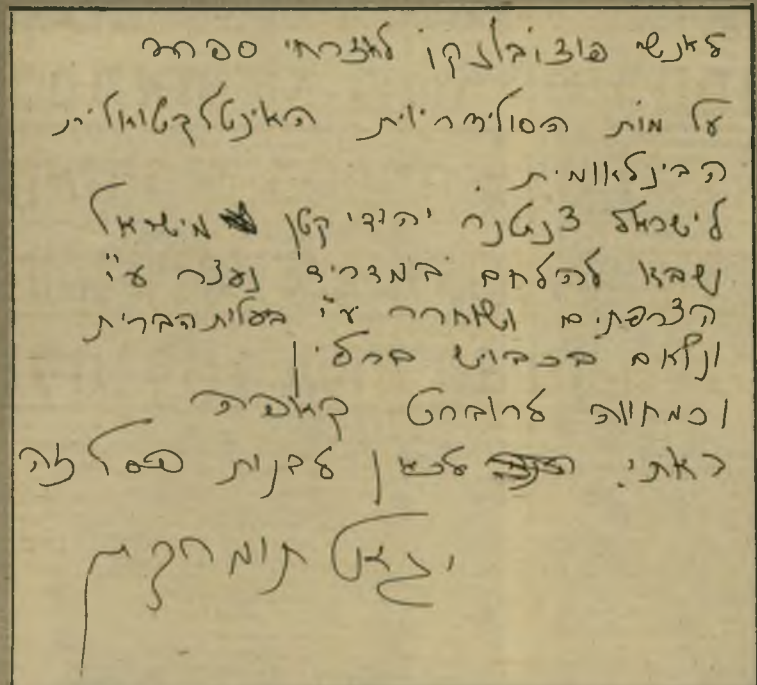 לאנשי פוצובלנקו לאזרחי ספרד
על מות הסולידריות האינטלקטואלית
הבינלאומית.
לישראל צנטנר יהודי קטן מישראל
להלחם במדריד נעצר ע"י
הצרפתים ושוחרר ע"י בעלות הברית
ונלחם בכבוש ברלין
וכמחווה לרוברט קאפה
באתי לכאן לבנות פסל זה
יגאל תומרקין